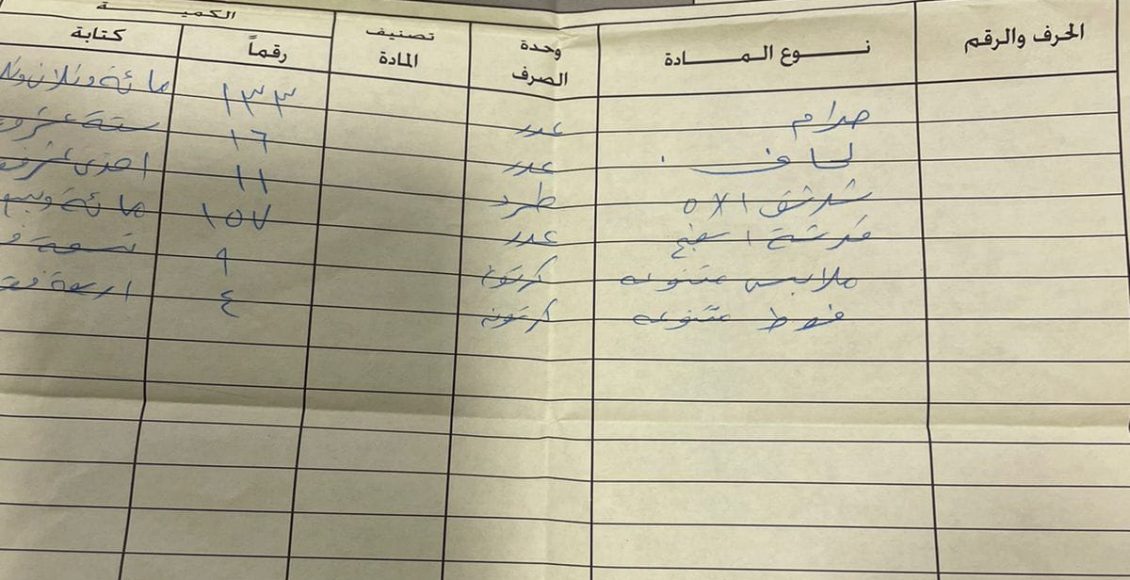 الحرف والرقم نوع المادة وحدة الصرف تصنيف المادة الكمية رقماً كتابة
حرام عدد ١٣٣ مائة وثلاث وثلا
لحاف عدد ١٦ ستة عشر
٥×٨ طرد ١١ احدى عشر
فرشة اسفنج عدد ١٥٧ مائة وسبع
ملابس متنوعه كرتونة ٩ تسعة
فوط متنوعه كرتونة ٤ اربعة فقط